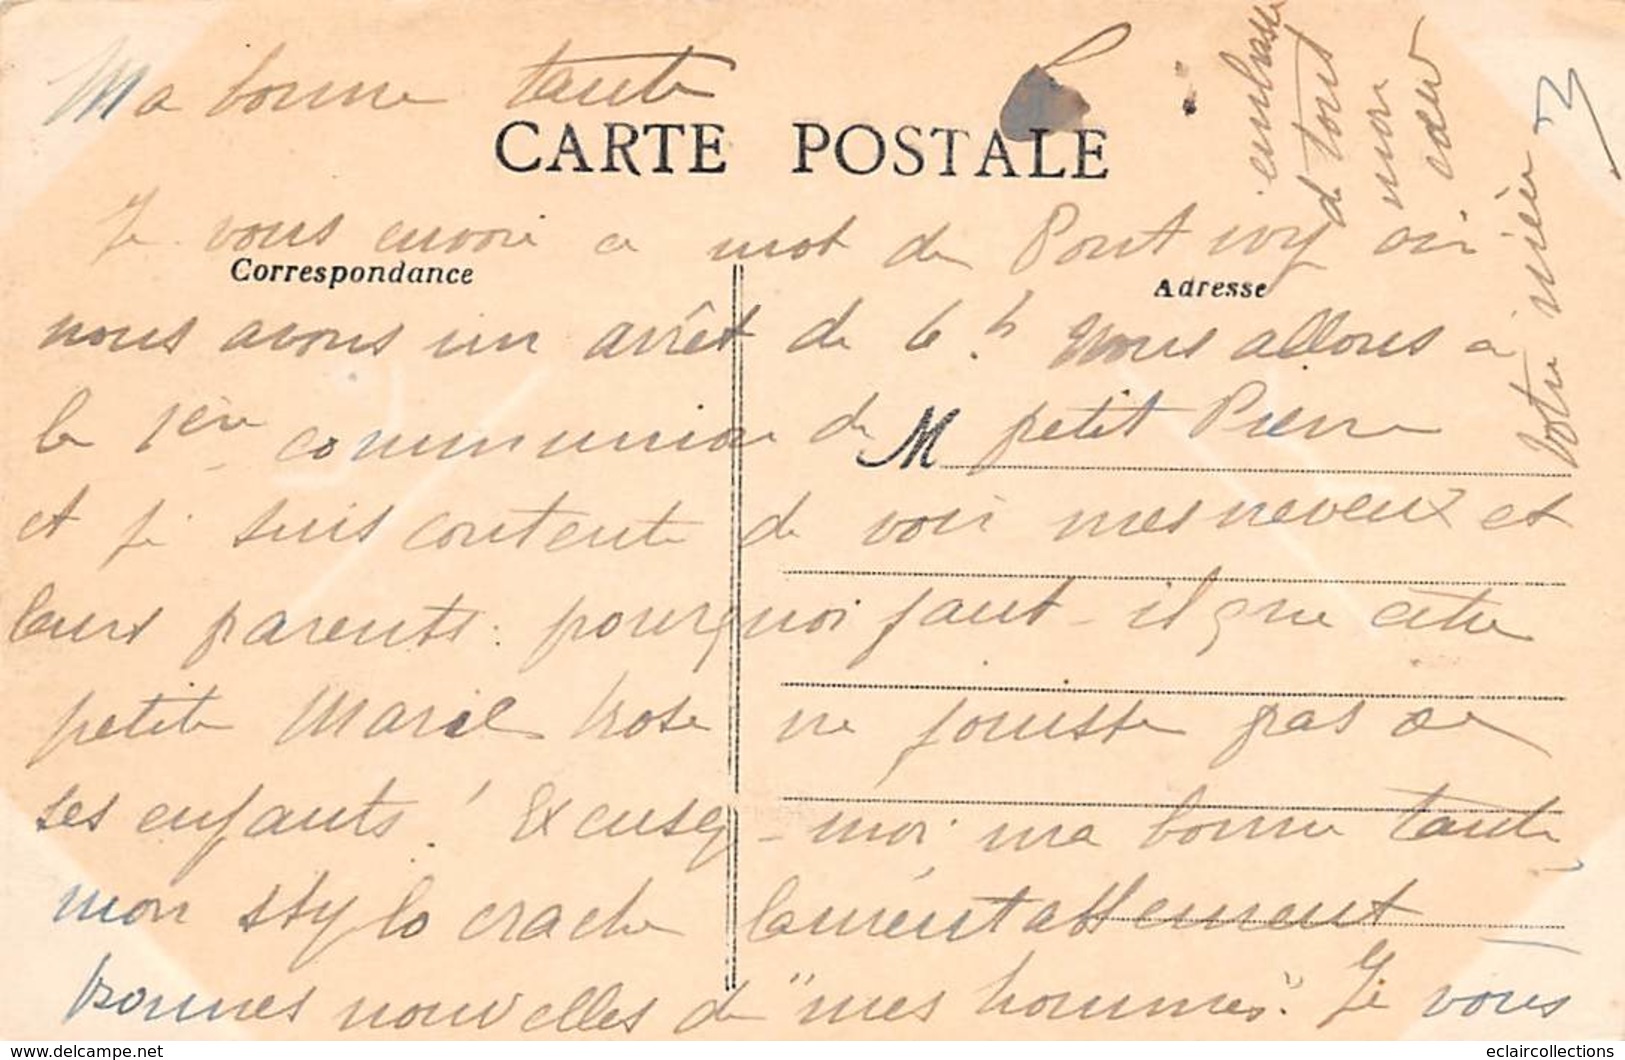 Ma bonne tante
CARTE POSTALE
Je vous envoie ce mot de Pontivy où
Correspondance
Adresse
nous avons un arrêt de 6 h. Nous allons à
la 1ère communion de petit Pierre
M
et je suis contente de voir mes neveux et
leurs parents. pourquoi faut-il que cette
petite Marie Rose ne jouisse pas de
ses enfants! Excusez-moi, ma bonne tante,
mon stylo crache lamentablement
bonnes nouvelles de "mes hommes". Je vous
embrasse
de tout
mon
cœur
Votre nièce
eclaircollections